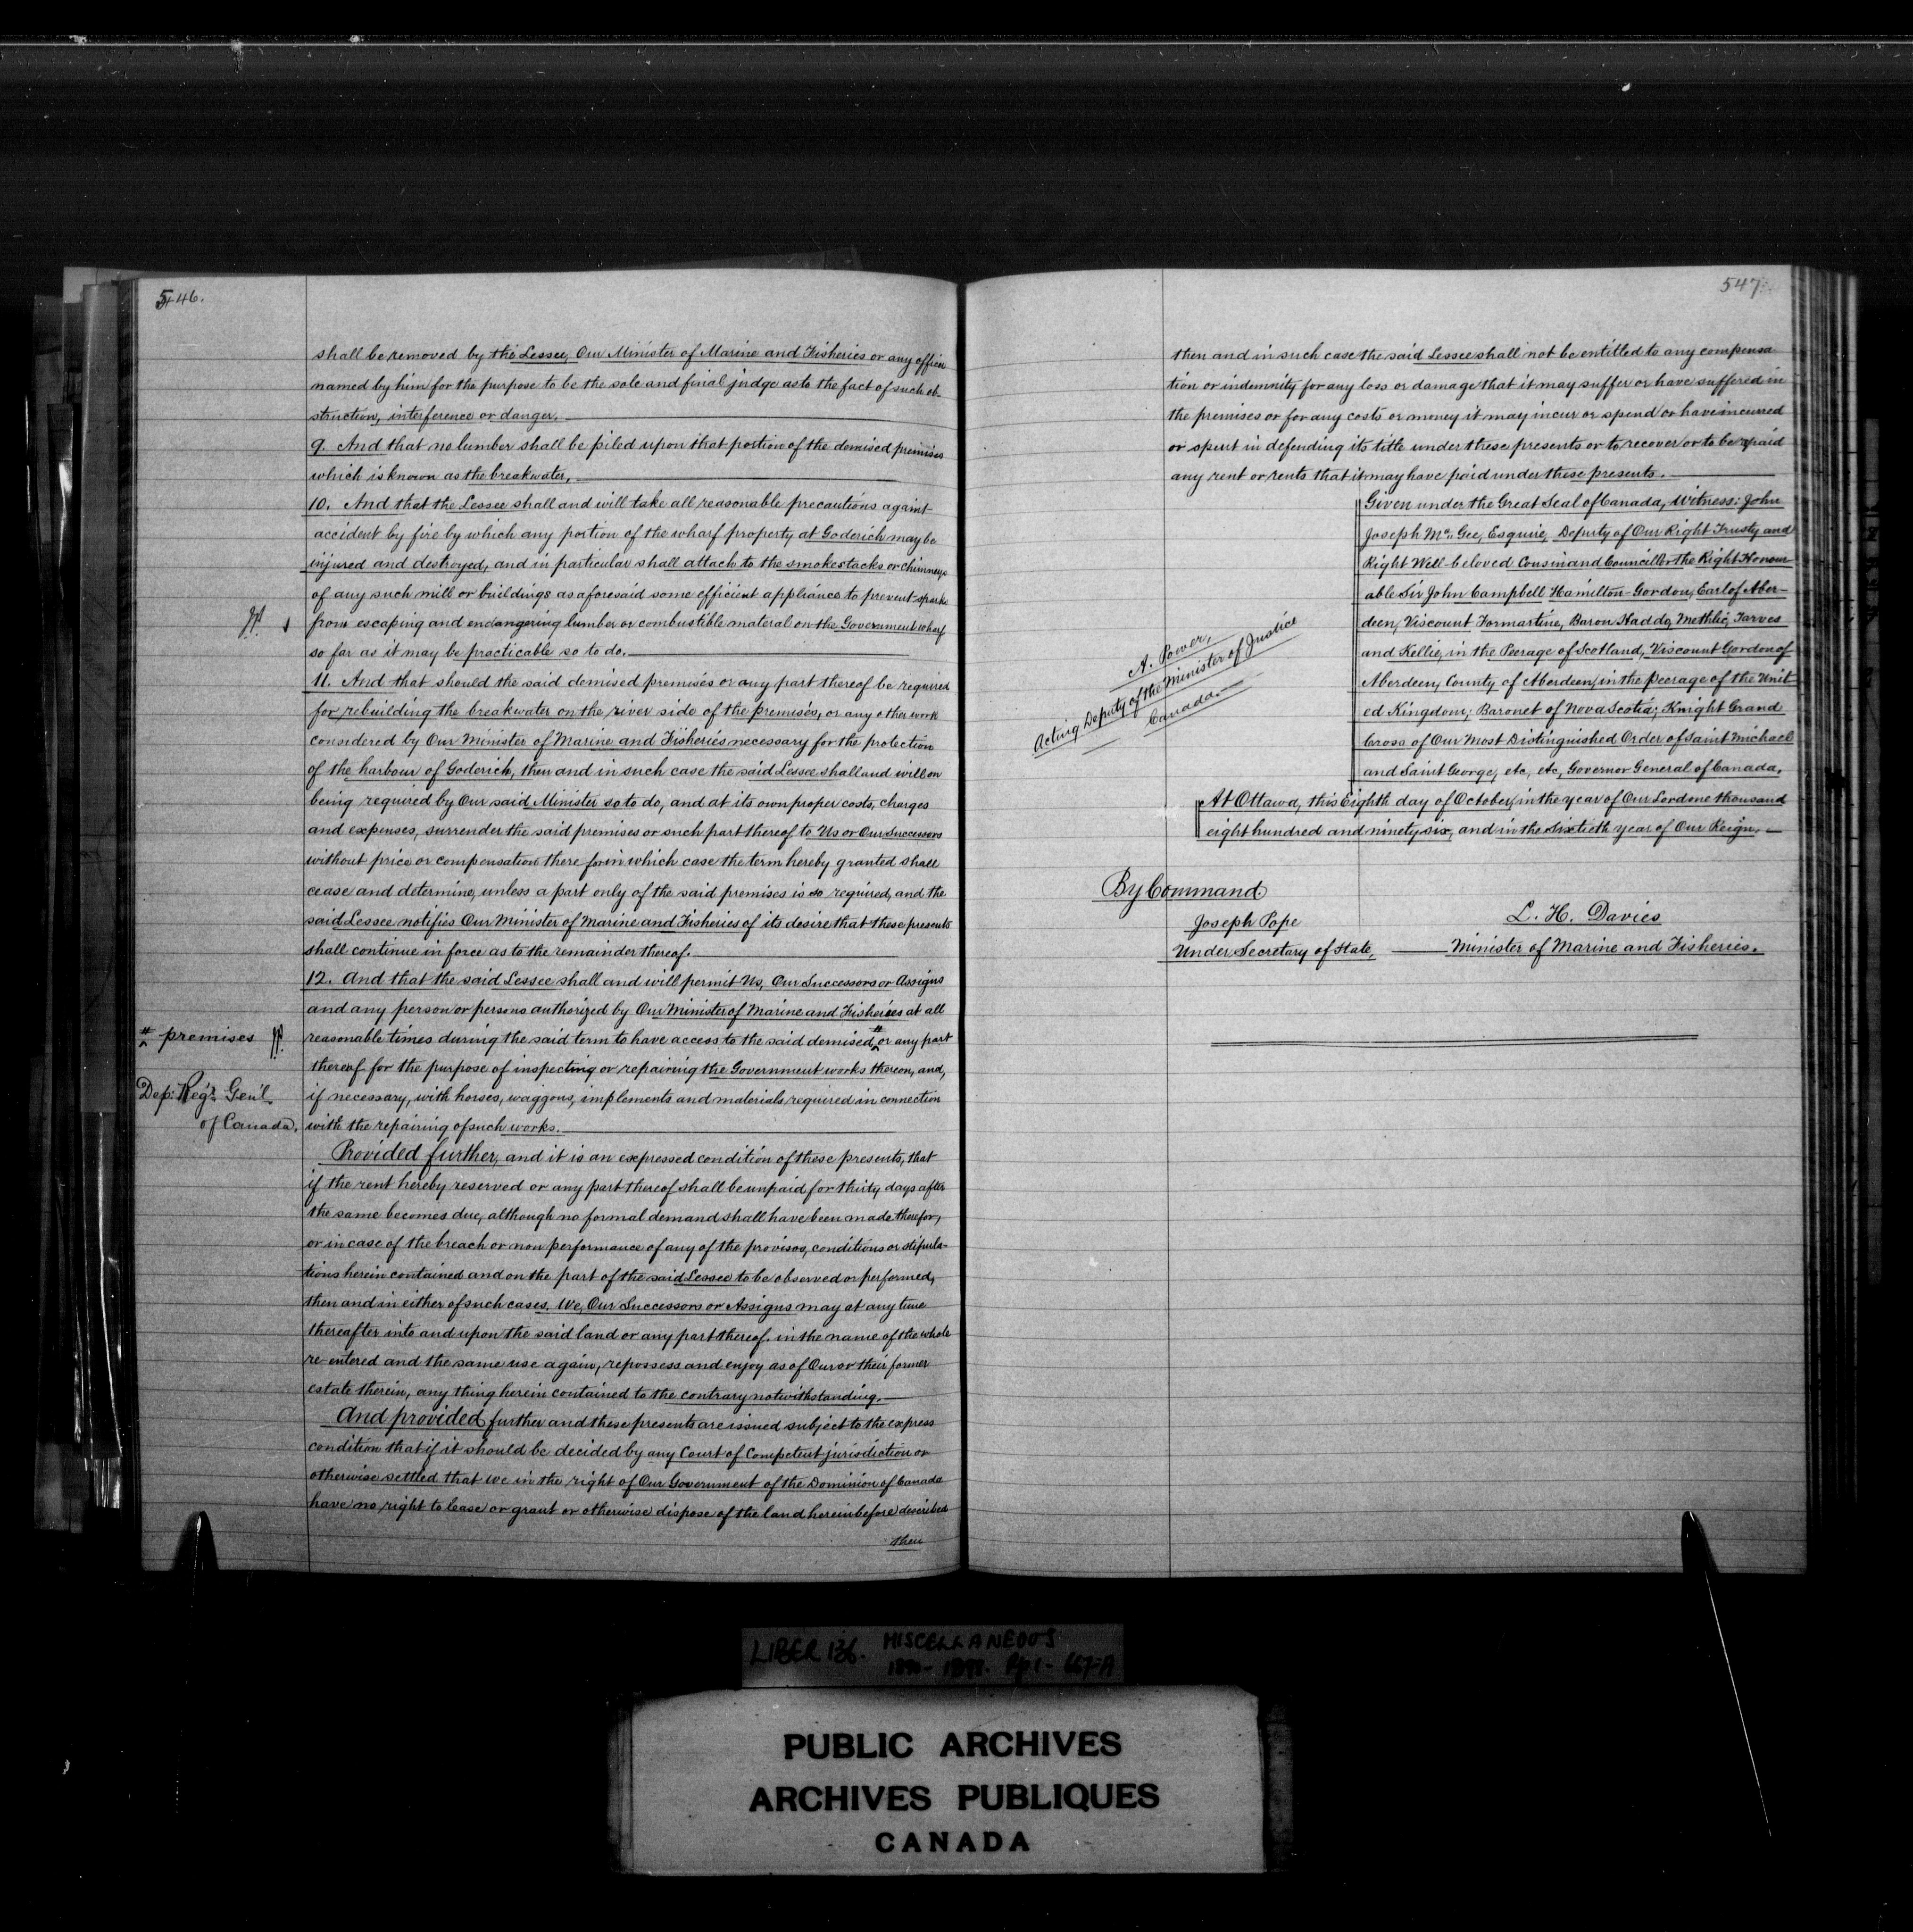 546.
shall be removed by the Lessee, Our Minister of Marine and Fisheries or any officer
named by him for the purpose to be the sole and final judge as to the fact of such ob-
struction, interference or danger.
9. And that no lumber shall be piled upon that portion of the demised premises
which is known as the breakwater,
10. And that the Lessee shall and will take all reasonable precautions against
accident by fire by which any portion of the wharf property at Goderich may be
injured and destroyed, and in particular shall attach to the smokestacks or chimneys
of any such mill or buildings as aforesaid some efficient appliance to prevent sparks
from escaping and endangering lumber or combustible material on the Government wharf
so far as it may be practicable so to do.
11. And that should the said demised premises or any part thereof be required
for rebuilding the breakwater on the river side of the premises, or any other work
considered by Our Minister of Marine and Fisheries necessary for the protection
of the harbour of Goderich, then and in such case the said Lessee shall and will on
being required by Our said Minister so to do, and at its own proper costs, charges
and expenses, surrender the said premises or such part thereof to Us or Our Successors
without price or compensation there for in which case the term hereby granted shall
cease and determine, unless a part only of the said premises is so required, and the
said Lessee notifies Our Minister of Marine and Fisheries of its desire that these presents
shall continue in force as to the remainder thereof.
12. And that the said Lessee shall and will permit Us, Our Successors or Assigns
and any person or persons authorized by Our Minister of Marine and Fisheries at all
# premises
reasonable times during the said term to have access to the said demised # or any part
thereof for the purpose of inspecting or repairing the Government works thereon, and,
Dep: Reg'r Gen'l
of Canada.
if necessary, with horses, waggons, implements and materials required in connection
with the repairing of such works.
Provided further, and it is an expressed condition of these presents, that
if the rent hereby reserved or any part thereof shall be unpaid for thirty days after
the same becomes due, although no formal demand shall have been made therefor,
or in case of the breach or non performance of any of the provisos, conditions or stipula-
tions herein contained and on the part of the said Lessee to be observed or performed,
then and in either of such cases, We, Our Successors or Assigns may at any time
thereafter into and upon the said land or any part thereof, in the name of the whole
re-entered and the same use again, repossess and enjoy as of Our or their former
estate therein, any thing herein contained to the contrary notwithstanding.
And provided further and these presents are issued subject to the express
condition that if it should be decided by any Court of Competent jurisdiction or
otherwise settled that we in the right of Our Government of the Dominion of Canada
have no right to lease or grant or otherwise dispose of the land hereinbefore described
then
547.
then and in such case the said Lessee shall not be entitled to any compensa
tion or indemnity for any loss or damage that it may suffer or have suffered in
the premises or for any costs or money it may incur or spend or have incurred
or spent in defending its title under these presents or to recover or to be repaid
any rent or rents that it may have paid under these presents.
Given under the Great Seal of Canada, Witness: John
Joseph McGee, Esquire, Deputy of Our Right Trusty and
Right Well-beloved Cousin and Councillor the Right Honour
able Sir John Campbell Hamilton-Gordon, Earl of Aber-
deen, Viscount Formartine, Baron Haddo, Methlic, Tarves
and Kellie, in the Peerage of Scotland, Viscount Gordon of
Aberdeen, County of Aberdeen, in the peerage of the Unit
ed Kingdom; Baronet of Nova Scotia; Knight Grand
Cross of Our Most Distinguished Order of Saint Michael
and Saint George, etc, etc, Governor General of Canada.
A. Power,
Acting Deputy of the Minister of Justice
Canada.
At Ottawa, this Eighth day of October, in the year of Our Lord one thousand
eight hundred and ninety six, and in the sixtieth year of Our Reign.
By Command.
Joseph Pope
Under Secretary of State,
L. H. Davies
Minister of Marine and Fisheries.
LIBER 136. MISCELLANEOUS
PUBLIC ARCHIVES
ARCHIVES PUBLIQUES
CANADA